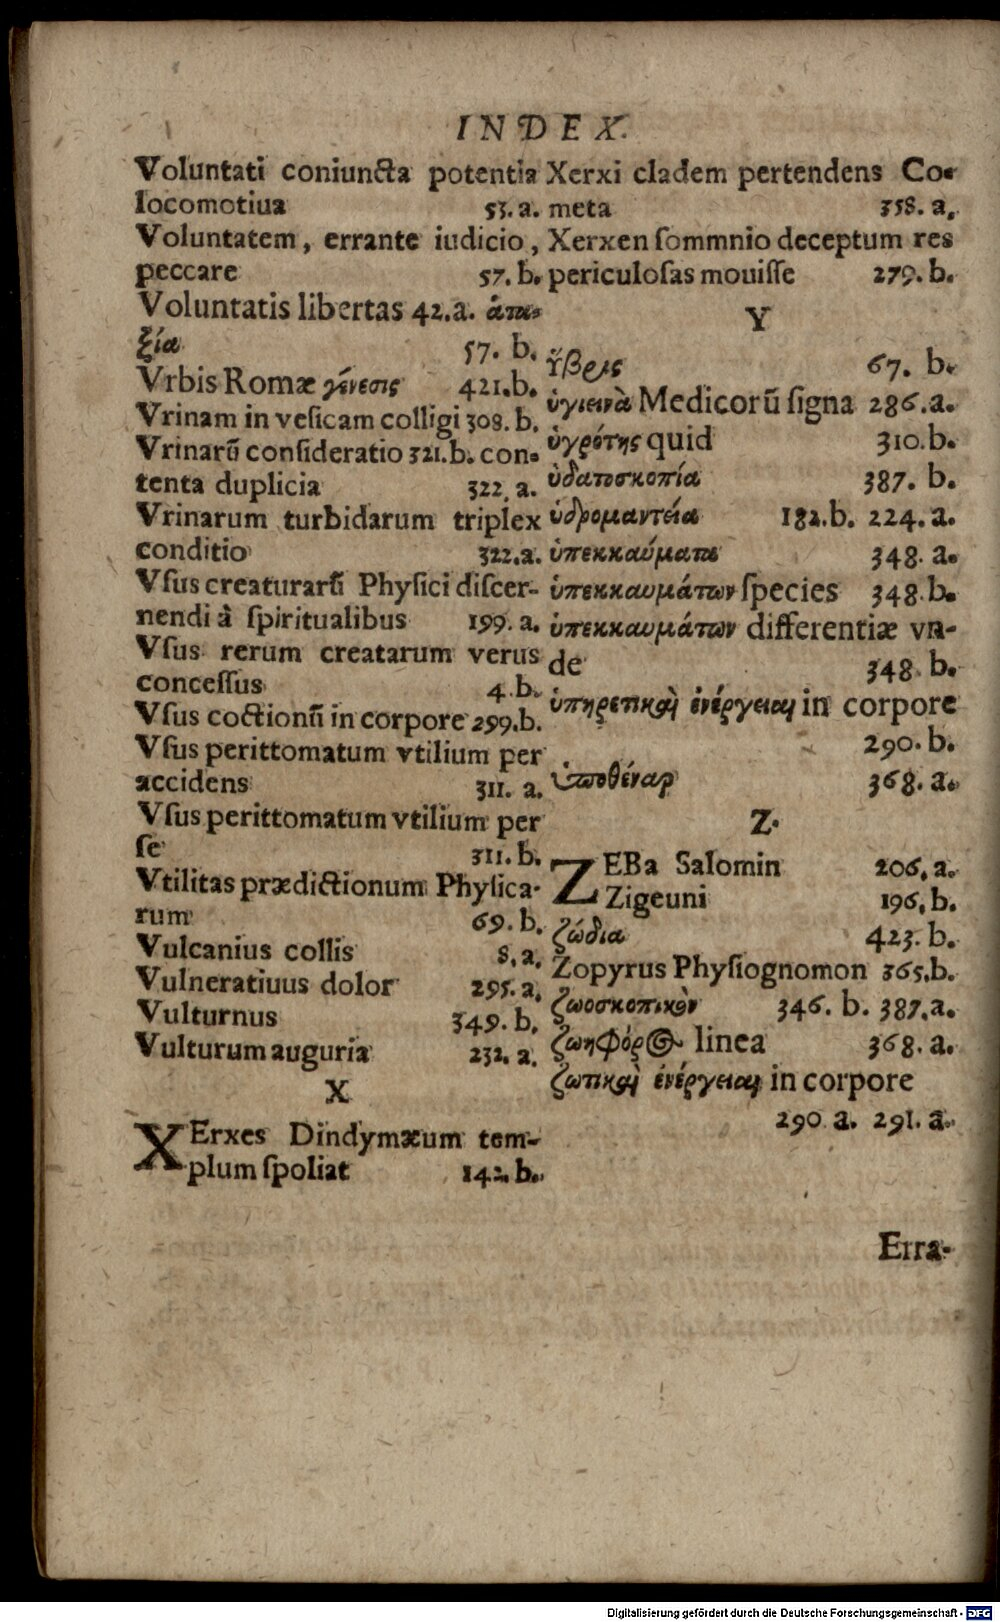 INDEX.
Voluntati coniuncta potentia
locomotiua 53. a.
Voluntatem, errante iudicio,
peccare 57. b.
Voluntatis libertas 42. a. ἀτα-
ξία 57. b.
Vrbis Romæ γένεσις 421. b.
Vrinam in vesicam colligi 308. b.
Vrinarũ consideratio 321. b. con-
tenta duplicia 322. a.
Vrinarum turbidarum triplex
conditio 322. a.
Vsus creaturarũ Physici discer-
nendi à spiritualibus 199. a.
Vsus rerum creatarum verus
concessus 4. b.
Vsus coctionũ in corpore 299. b.
Vsus perittomatum vtilium per
accidens 311. a.
Vsus perittomatum vtilium per
se 311. b.
Vtilitas prædictionum Physica-
rum 69. b.
Vulcanius collis 8. a.
Vulneratiuus dolor 295. a.
Vulturnus 349. b.
Vulturum auguria 232. a.
X
XErxes Dindymæum tem-
plum spoliat 142. b.
Xerxi cladem pertendens Co-
meta 358. a.
Xerxen sommnio deceptum res
periculosas mouisse 279. b.
Y
ὕβρις 67. b.
ὑγιεινὰ Medicorũ signa 286. a.
ὑγρότης quid 310. b.
ὑδατοσκοπία 387. b.
ὑδρομαντεία 182. b. 224. a.
ὑπεκκαύματα 348. a.
ὑπεκκαυμάτων species 348. b.
ὑπεκκαυμάτων differentiæ vn-
de 348. b.
ὑπηρετικαὶ ἐνέργειαι in corpore
290. b.
ὑποθέναρ 368. a.
Z.
ZEBa Salomin 206. a.
Zigeuni 196. b.
ζώδια 423. b.
Zopyrus Physiognomon 365. b.
ζωοσκοπικὸν 346. b. 387. a.
ζωηφόρος linea 368. a.
ζωτικαὶ ἐνέργειαι in corpore
290 a. 291. a.
Erra-
Digitalisierung gefördert durch die Deutsche Forschungsgemeinschaft - DFG